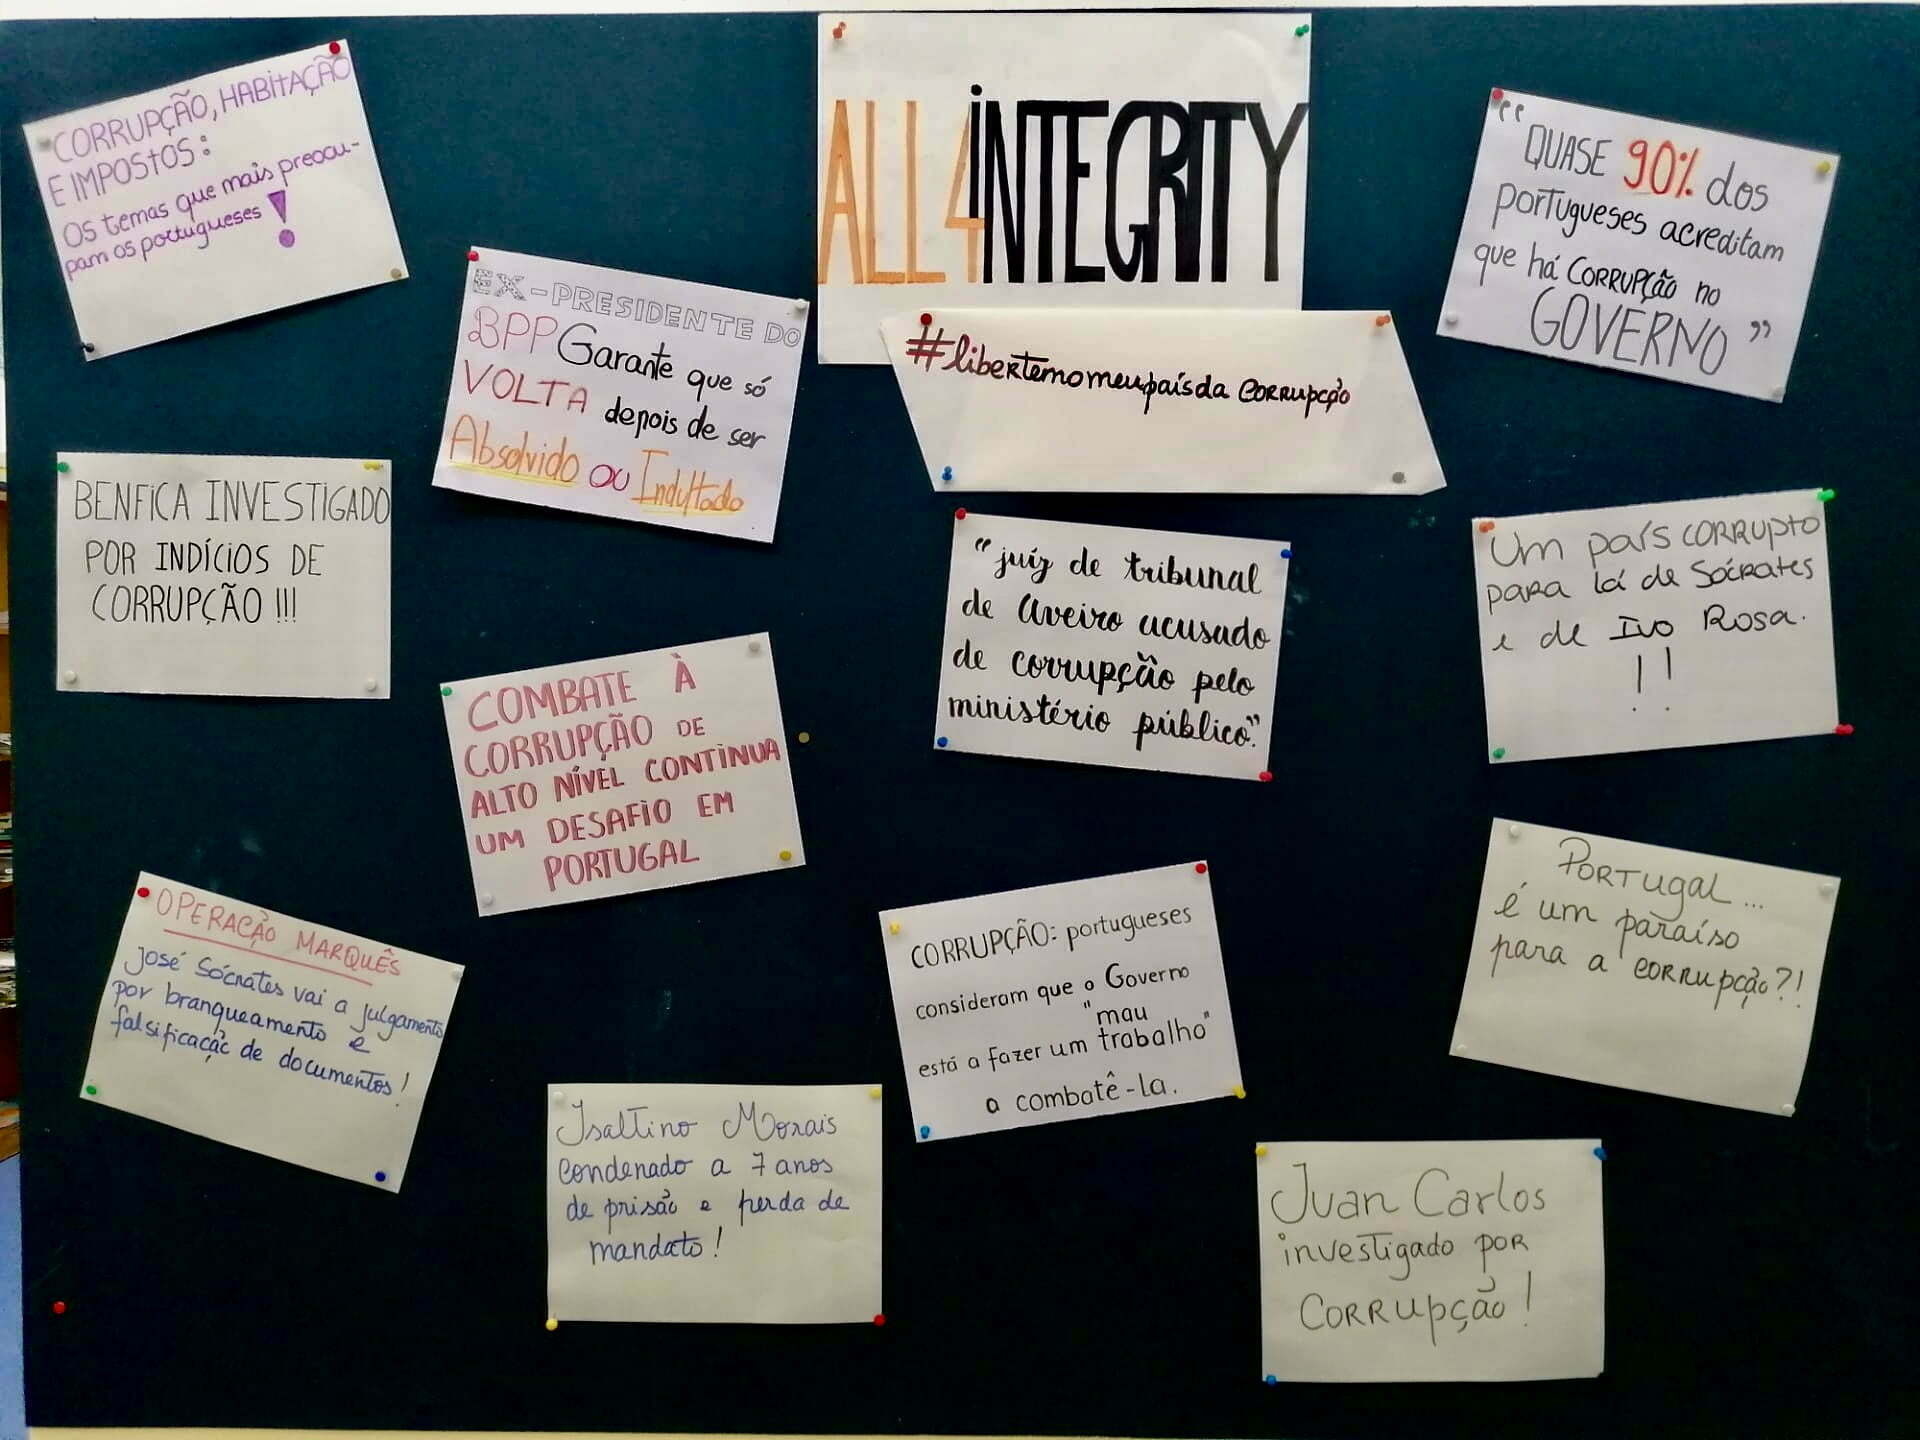 ALL4iNTEGRITY
#libertemomeupaísda CORRUPÇÃO
CORRUPÇÃO, HABITAÇÃO
E IMPOSTOS:
Os temas que mais preocu-
pam os portugueses!
EX-PRESIDENTE DO
BPP Garante que só
VOLTA depois de ser
Absolvido ou Indultado
"QUASE 90% dos
portugueses acreditam
que há CORRUPÇÃO no
GOVERNO"
BENFICA INVESTIGADO
POR INDÍCIOS DE
CORRUPÇÃO!!!
"juiz de tribunal
de Aveiro acusado
de corrupção pelo
ministério público."
Um país CORRUPTO
para lá de Sócrates
e de Ivo Rosa.
!!
COMBATE À
CORRUPÇÃO DE
ALTO NÍVEL CONTINUA
UM DESAFIO EM
PORTUGAL
OPERAÇÃO MARQUÊS
José Sócrates vai a julgamento
por branqueamento e
falsificação de documentos!
CORRUPÇÃO: portugueses
consideram que o Governo
está a fazer um "mau
trabalho"
a combatê-la.
PORTugal...
é um paraíso
para a CORRUPÇÃO?!
Isaltino Morais
condenado a 7 anos
de prisão e perda de
mandato!
Juan Carlos
investigado por
CORRUPÇÃO!